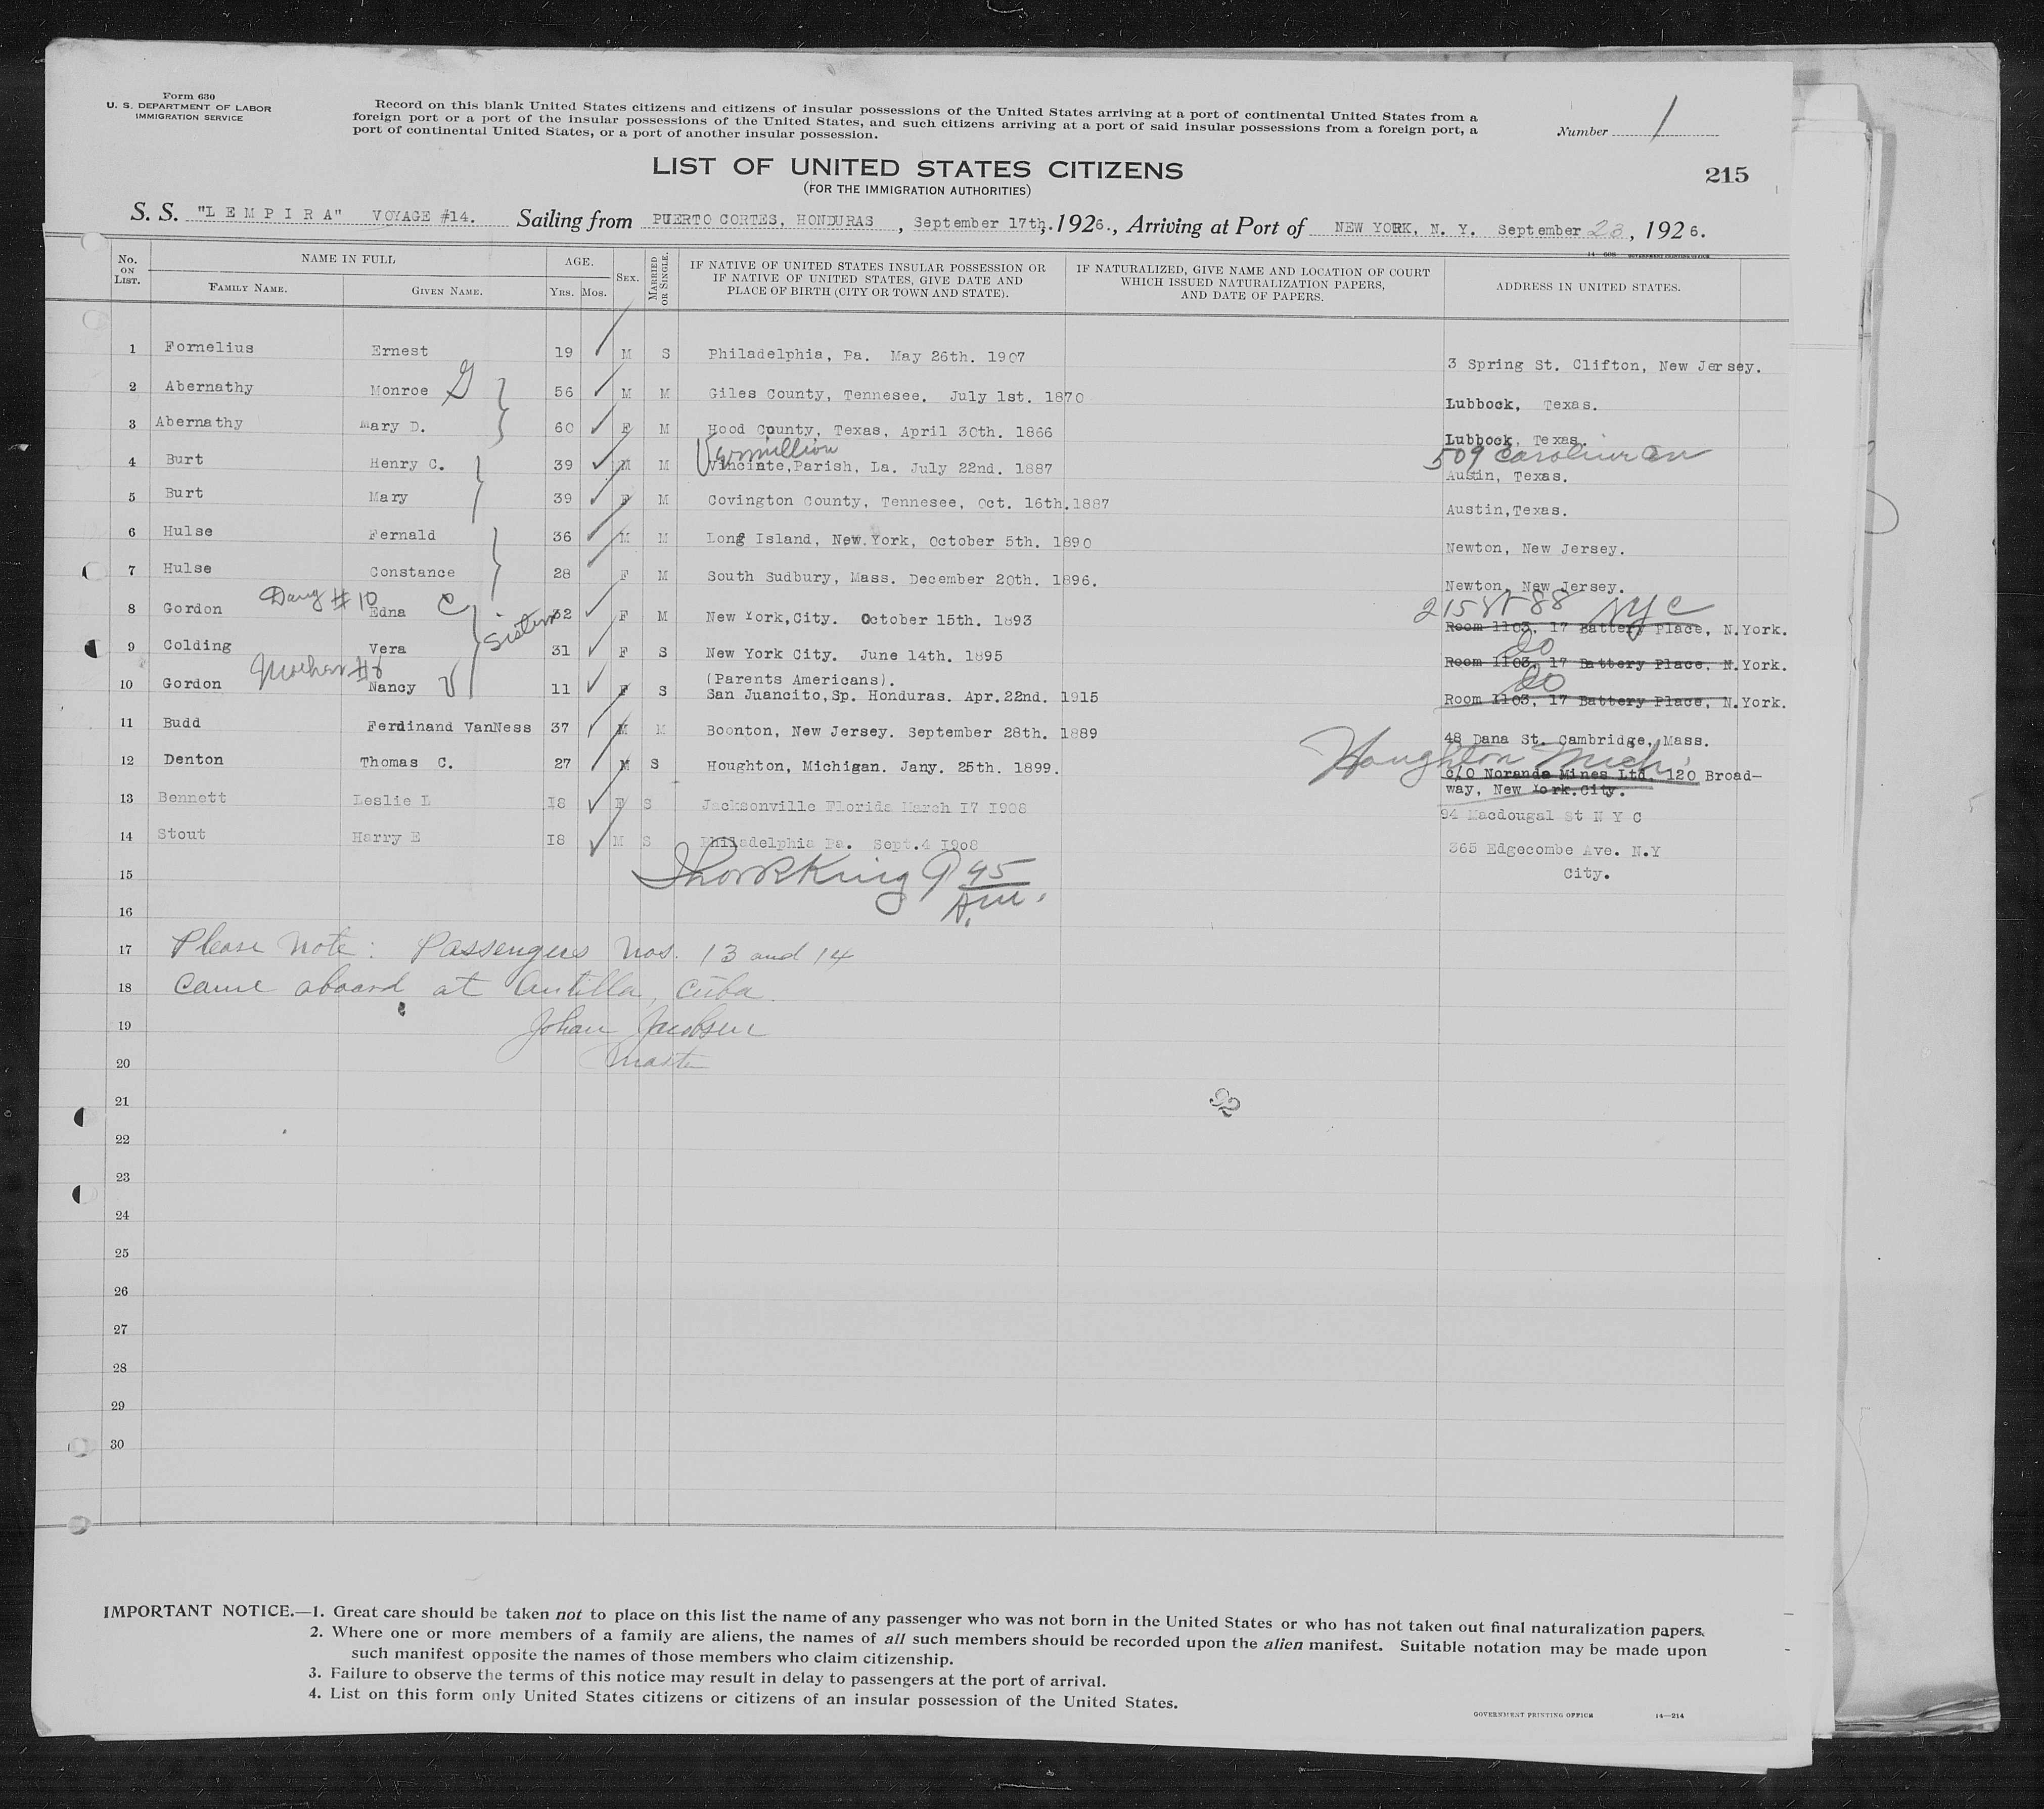 Form 630
U. S. DEPARTMENT OF LABOR
IMMIGRATION SERVICE
Record on this blank United States citizens and citizens of insular possessions of the United States arriving at a port of continental United States from a
foreign port or a port of the insular possessions of the United States, and such citizens arriving at a port of said insular possessions from a foreign port, a
port of continental United States, or a port of another insular possession.
Number 1
LIST OF UNITED STATES CITIZENS
215
(FOR THE IMMIGRATION AUTHORITIES)
S. S. "L E M P I R A" VOYAGE #14. Sailing from PUERTO CORTES, HONDURAS, September 17th, 1926., Arriving at Port of NEW YORK, N. Y. September 23, 1926.
No. ON LIST. NAME IN FULL AGE. SEX. MARRIED OR SINGLE. IF NATIVE OF UNITED STATES INSULAR POSSESSION OR IF NATIVE OF UNITED STATES, GIVE DATE AND PLACE OF BIRTH (CITY OR TOWN AND STATE). IF NATURALIZED, GIVE NAME AND LOCATION OF COURT WHICH ISSUED NATURALIZATION PAPERS, AND DATE OF PAPERS. ADDRESS IN UNITED STATES.
FAMILY NAME. GIVEN NAME. Yrs. Mos.
1 Fornelius Ernest 19 M S Philadelphia, Pa. May 26th. 1907 3 Spring St. Clifton, New Jersey.
2 Abernathy Monroe G 56 M M Giles County, Tennesee. July 1st. 1870 Lubbock, Texas.
3 Abernathy Mary D. 60 F M Hood County, Texas, April 30th. 1866 Lubbock, Texas.
Vermillion 509 Carolina
4 Burt Henry C. 39 M M Vincinte,Parish, La. July 22nd. 1887 Austin, Texas.
5 Burt Mary 39 F M Covington County, Tennesee, Oct. 16th.1887 Austin,Texas.
6 Hulse Fernald 36 M M Long Island, New.York, October 5th. 1890 Newton, New Jersey.
7 Hulse Constance 28 F M South Sudbury, Mass. December 20th. 1896. Newton, New Jersey.
Daug #10 C Sister 215 St 88 NYC
8 Gordon Edna 32 F M New York,City. October 15th. 1893 Room 1103, 17 Battery Place, N.York.
do
9 Colding Vera 31 F S New York City. June 14th. 1895 Room 1103, 17 Battery Place, N.York.
Mother #8 (Parents Americans). do
10 Gordon Nancy 11 F S San Juancito,Sp. Honduras. Apr.22nd. 1915 Room 1103, 17 Battery Place, N.York.
11 Budd Ferdinand VanNess 37 M M Boonton, New Jersey. September 28th. 1889 48 Dana St. Cambridge, Mass.
Houghton Mich
12 Denton Thomas C. 27 M S Houghton, Michigan. Jany. 25th. 1899. c/o Noranda Mines Ltd. 120 Broad-
way, New York.City.
13 Bennett Leslie L I8 F S Jacksonville Florida March I7 I908 94 Macdougal St N Y C
14 Stout Harry E I8 M S Philadelphia Pa. Sept.4 I908 365 Edgecombe Ave. N.Y
City.
15 9 45
A.M.
16
17 Please Note: Passengers Nos. 13 and 14
18 came aboard at Antilla, Cuba.
19 Johan Jacobsen
20 Master
21
22
23
24
25
26
27
28
29
30
IMPORTANT NOTICE.—1. Great care should be taken not to place on this list the name of any passenger who was not born in the United States or who has not taken out final naturalization papers.
2. Where one or more members of a family are aliens, the names of all such members should be recorded upon the alien manifest. Suitable notation may be made upon
such manifest opposite the names of those members who claim citizenship.
3. Failure to observe the terms of this notice may result in delay to passengers at the port of arrival.
4. List on this form only United States citizens or citizens of an insular possession of the United States.
GOVERNMENT PRINTING OFFICE 14—214